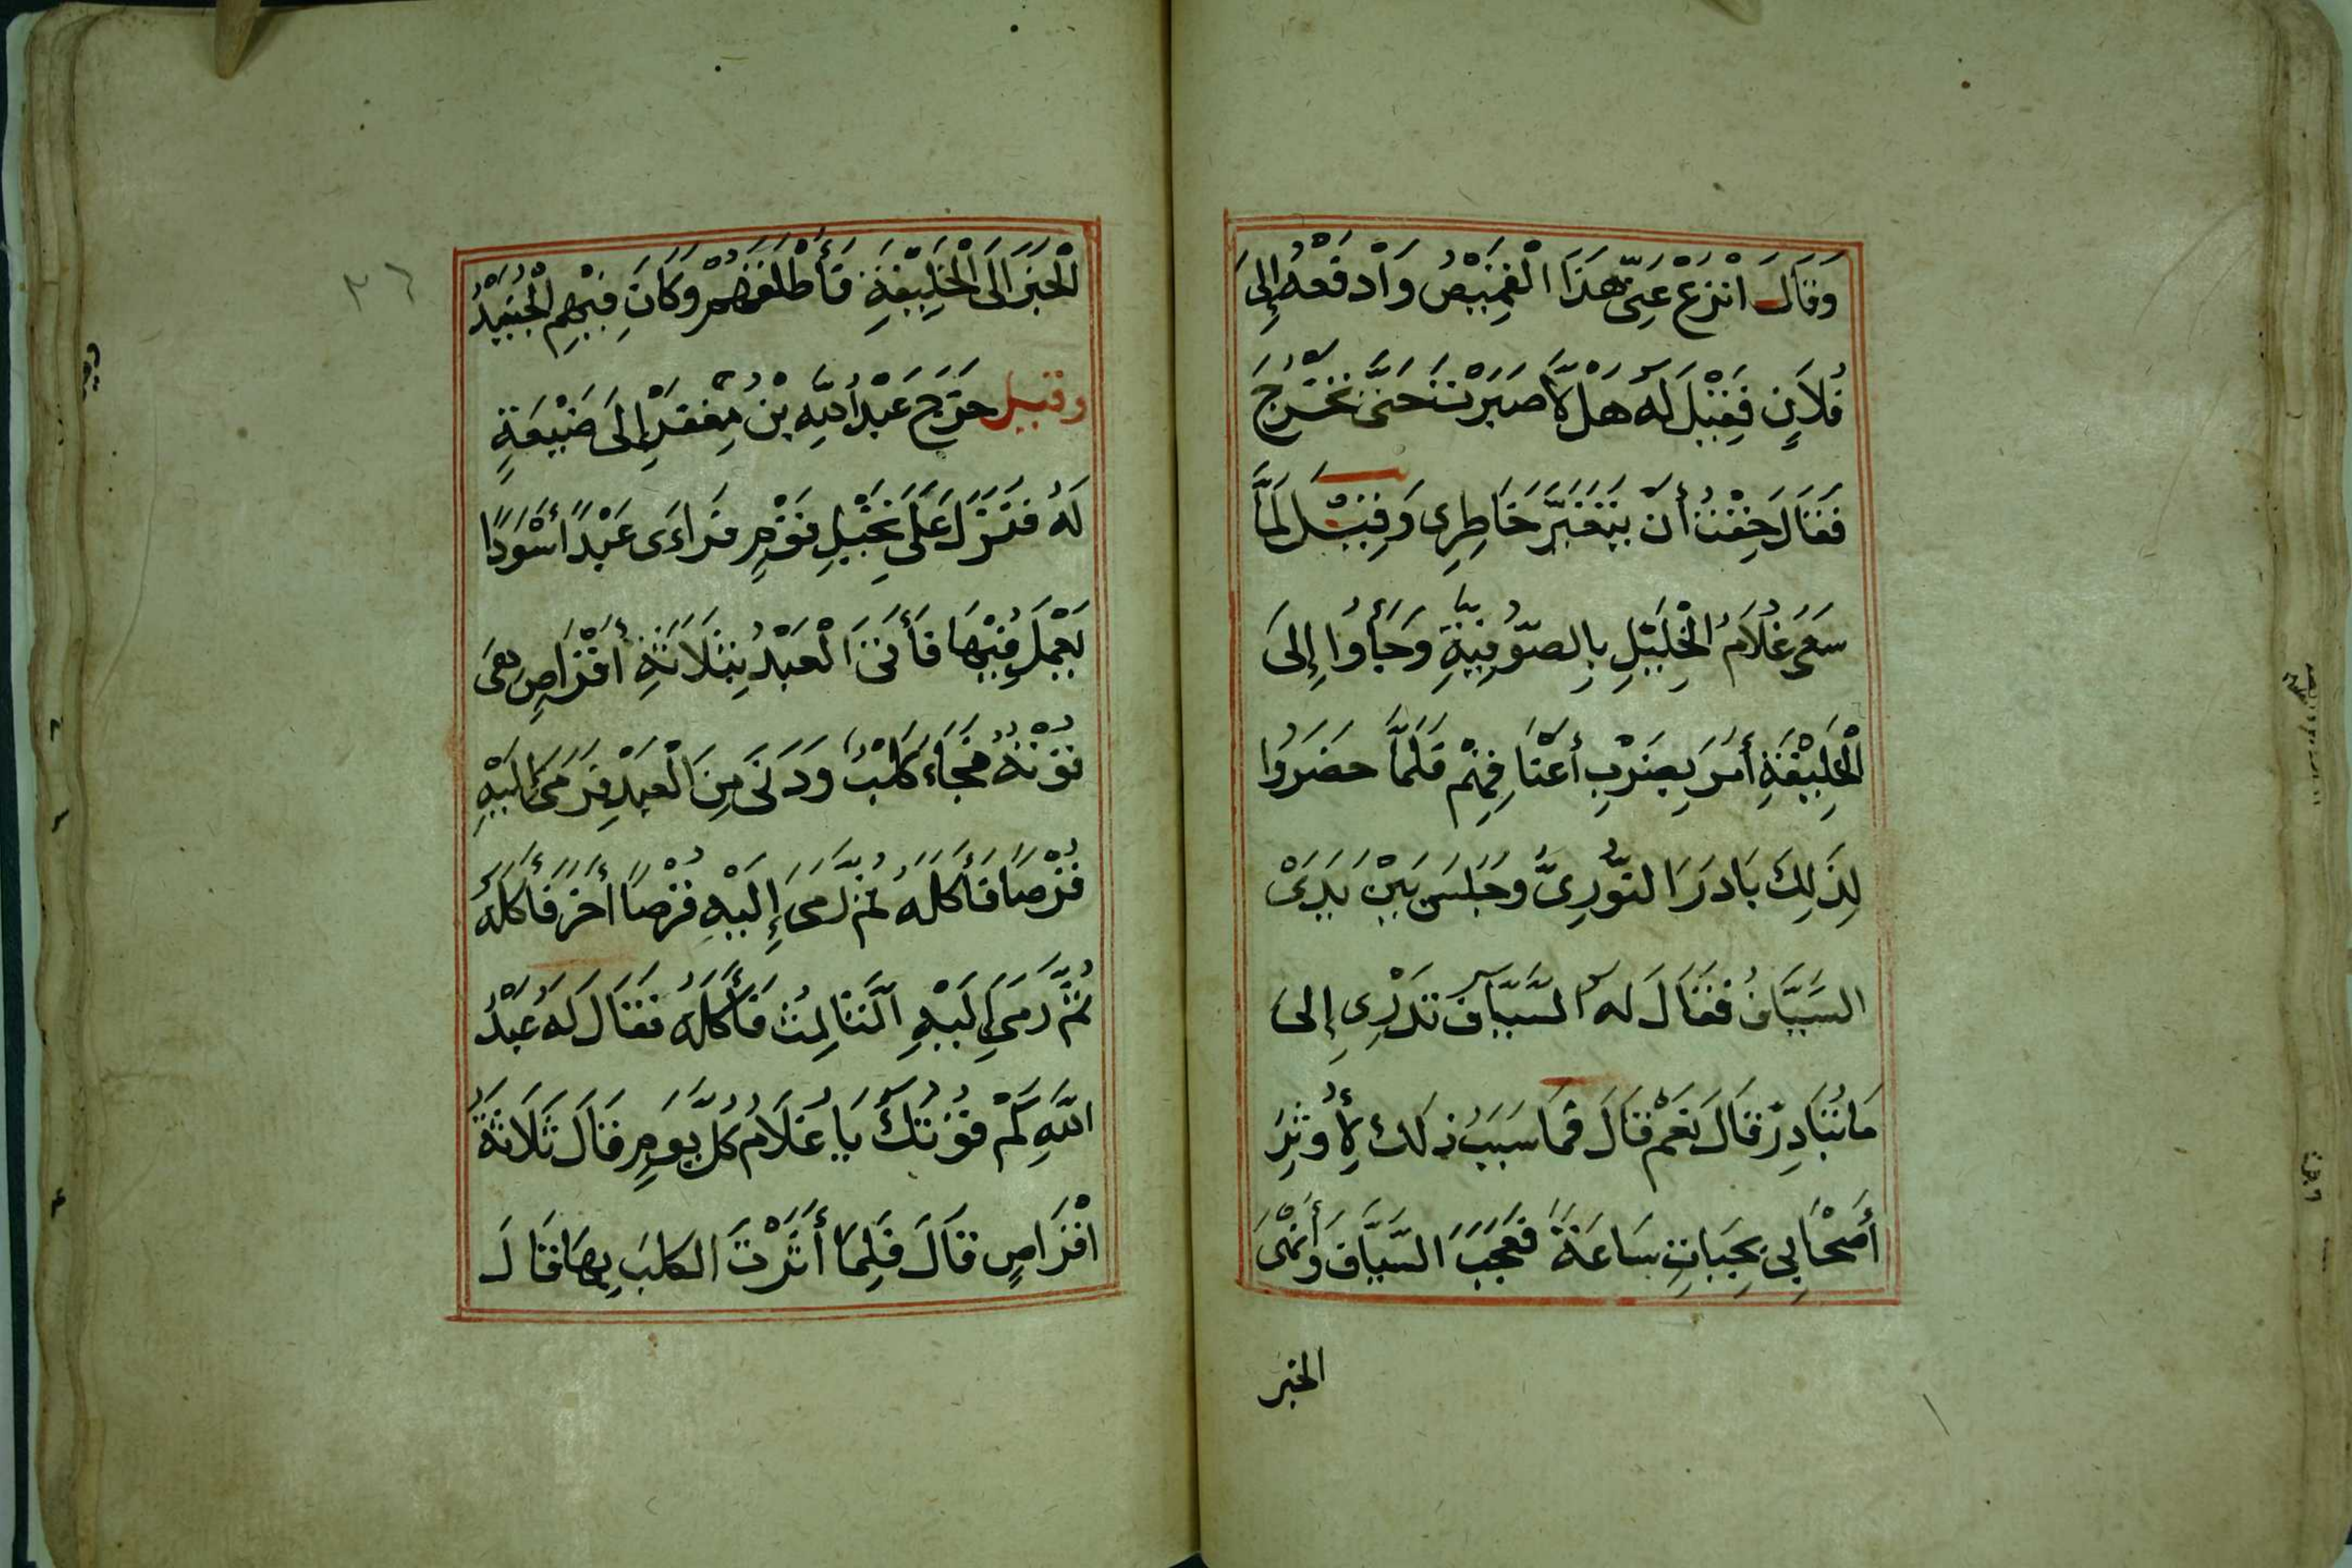 وَقَالَ انْزِعْ عَنِّي هَذَا الْقَمِيْصُ وَادْفَعْهُ إِلَى
فُلَانٍ فَقِيْلَ لَهُ هَلَّا صَبَرْتَ حَتَّى تَخْرُجَ
فَقَالَ خِفْتُ أَنْ يَتَغَيَّرَ خَاطِرِي وَقِيْلَ لَمَّا
سَعَى غُلَامُ الْخَلِيْلِ بِالصُّوْفِيَّةِ وَجَأُوا إِلَى
الْخَلِيْفَةِ أَمَرَ بِضَرْبِ أَعْنَاقِهِمْ فَلَمَّا حَضَرُوا
لِذَلِكَ بَادَرَ النُّوْرِيُّ وَجَلَسَ بَيْنَ يَدَيْ
السَّيَّافُ فَقَالَ لَهُ السَّيَّافُ تَدْرِي إِلَى
مَا تُبَادِرُ قَالَ نَعَمْ قَالَ فَمَا سَبَبُ ذلك لِأُوثِرَ
أَصْحَابِي بِحَيَاتِ سَاعَةً فَعَجِبَ السَّيَّافُ وَأَنْهَى
الخبر
الْخَبَرَ إِلَى الْخَلِيْفَةِ فَأَطْلَقَهُمْ وَكَانَ فِيْهِم الْجُنَيْدُ
وقيل خَرَجَ عَبْدُ اللَّهِ بْنُ جَعْفَرٍ إِلَى ضَيْعَةٍ
لَهُ فَنَزَلَ عَلَى نَخِيْلِ قَوْمٍ فَرَاءَى عَبْدًا أَسْوَدًا
يَعْمَلُ فِيْهَا فَأَتَى الْعَبْدُ بِثَلَاثَةِ أَقْرَاصٍ هي
قُوْتُهُ فَجَاءَ كَلْبٌ وَدَنَى مِنَ الْعَبْدِ فَرَمَى إِلَيْهِ
قُرْصًا فَأَكَلَهُ ثُمَّ رَمَى إِلَيْهِ قُرْصًا أَخَرَ فَأَكَلَهُ
ثُمَّ رَمَى إِلَيْهِ الثَّالِثَ فَأَكَلَهُ فَقَالَ لَهُ عَبْدُ
اللَّهِ كَمْ قُوْتُكَ يَا غُلَامُ كُلَّ يَوْمٍ فَقَالَ ثَلَاثَةُ
اقْرَاصٍ قَالَ فَلِمَا أَثَرْتَ الكلبَ بِهَا قَالَ
٣٦